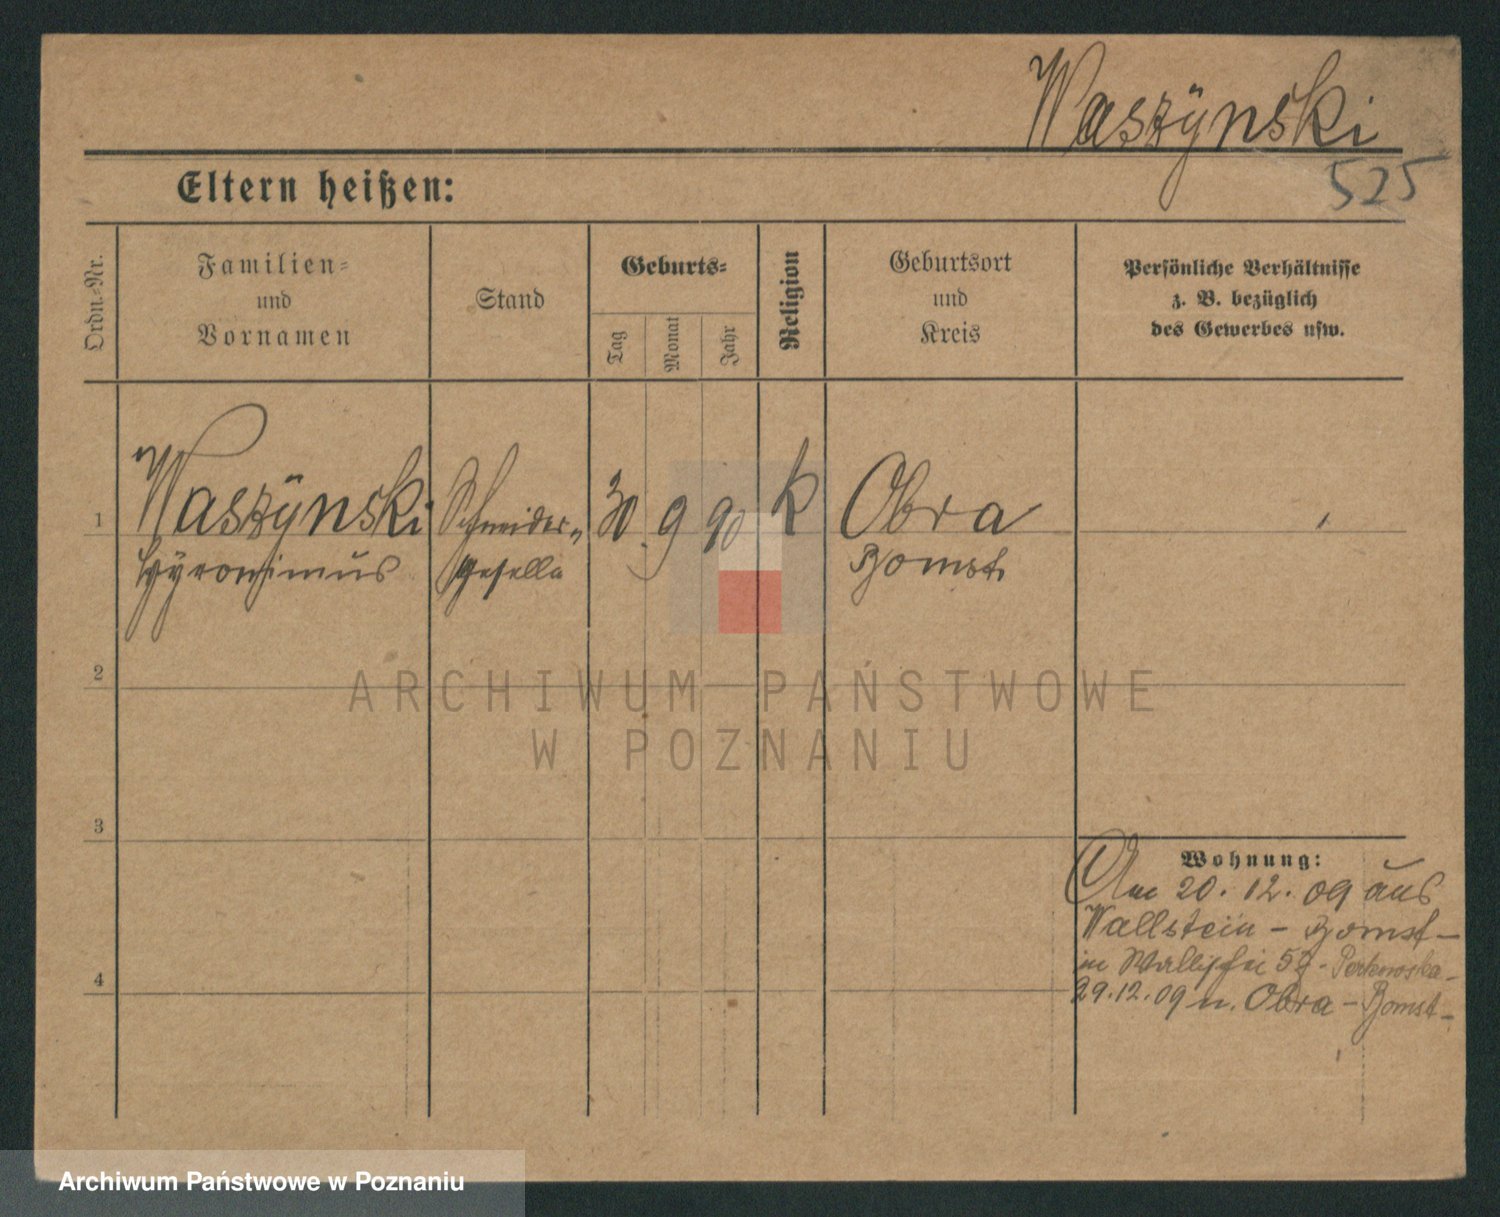 Waszÿnski
525
Eltern heißen:
Ordn.-Nr.
Familien-
und
Vornamen
Stand
Geburts-
Tag
Monat
Jahr
Religion
Geburtsort
und
Kreis
Persönliche Verhältnisse
z. B. bezüglich
des Gewerbes usw.
1
Waszÿnski
Hÿronimus
Schneider-
geselle
30
9
90
k
Obra
Bomst
2
3
4
Wohnung:
Am 20.12.09 aus
Wallstein - Bomst -
in
29.12.09 n. Obra - Bomst -
ARCHIWUM PAŃSTWOWE
W POZNANIU
Archiwum Państwowe w Poznaniu